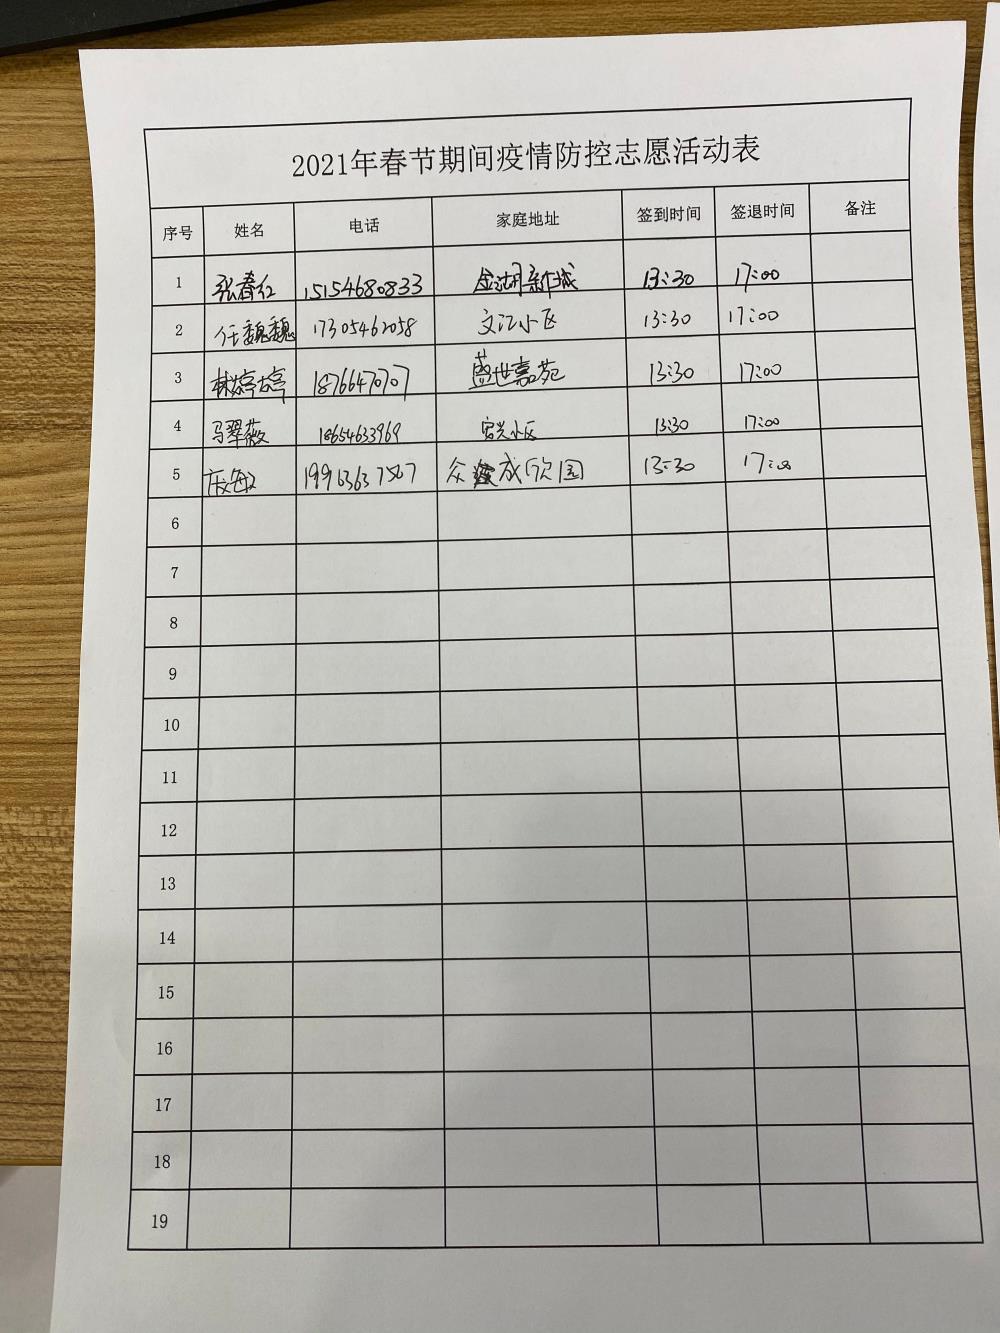 2021年春节期间疫情防控志愿活动表
序号 姓名 电话 家庭地址 签到时间 签退时间 备注
1 张春红 15154680833 金湖新城 13:30 17:00
2 任魏魏 17305462058 文汇小区 13:30 17:00
3 林婷婷 18766470707 盛世嘉苑 13:30 17:00
4 马翠薇 18654633969 小区 13:30 17:00
5 众成欣园 13:30 17:00
6
7
8
9
10
11
12
13
14
15
16
17
18
19